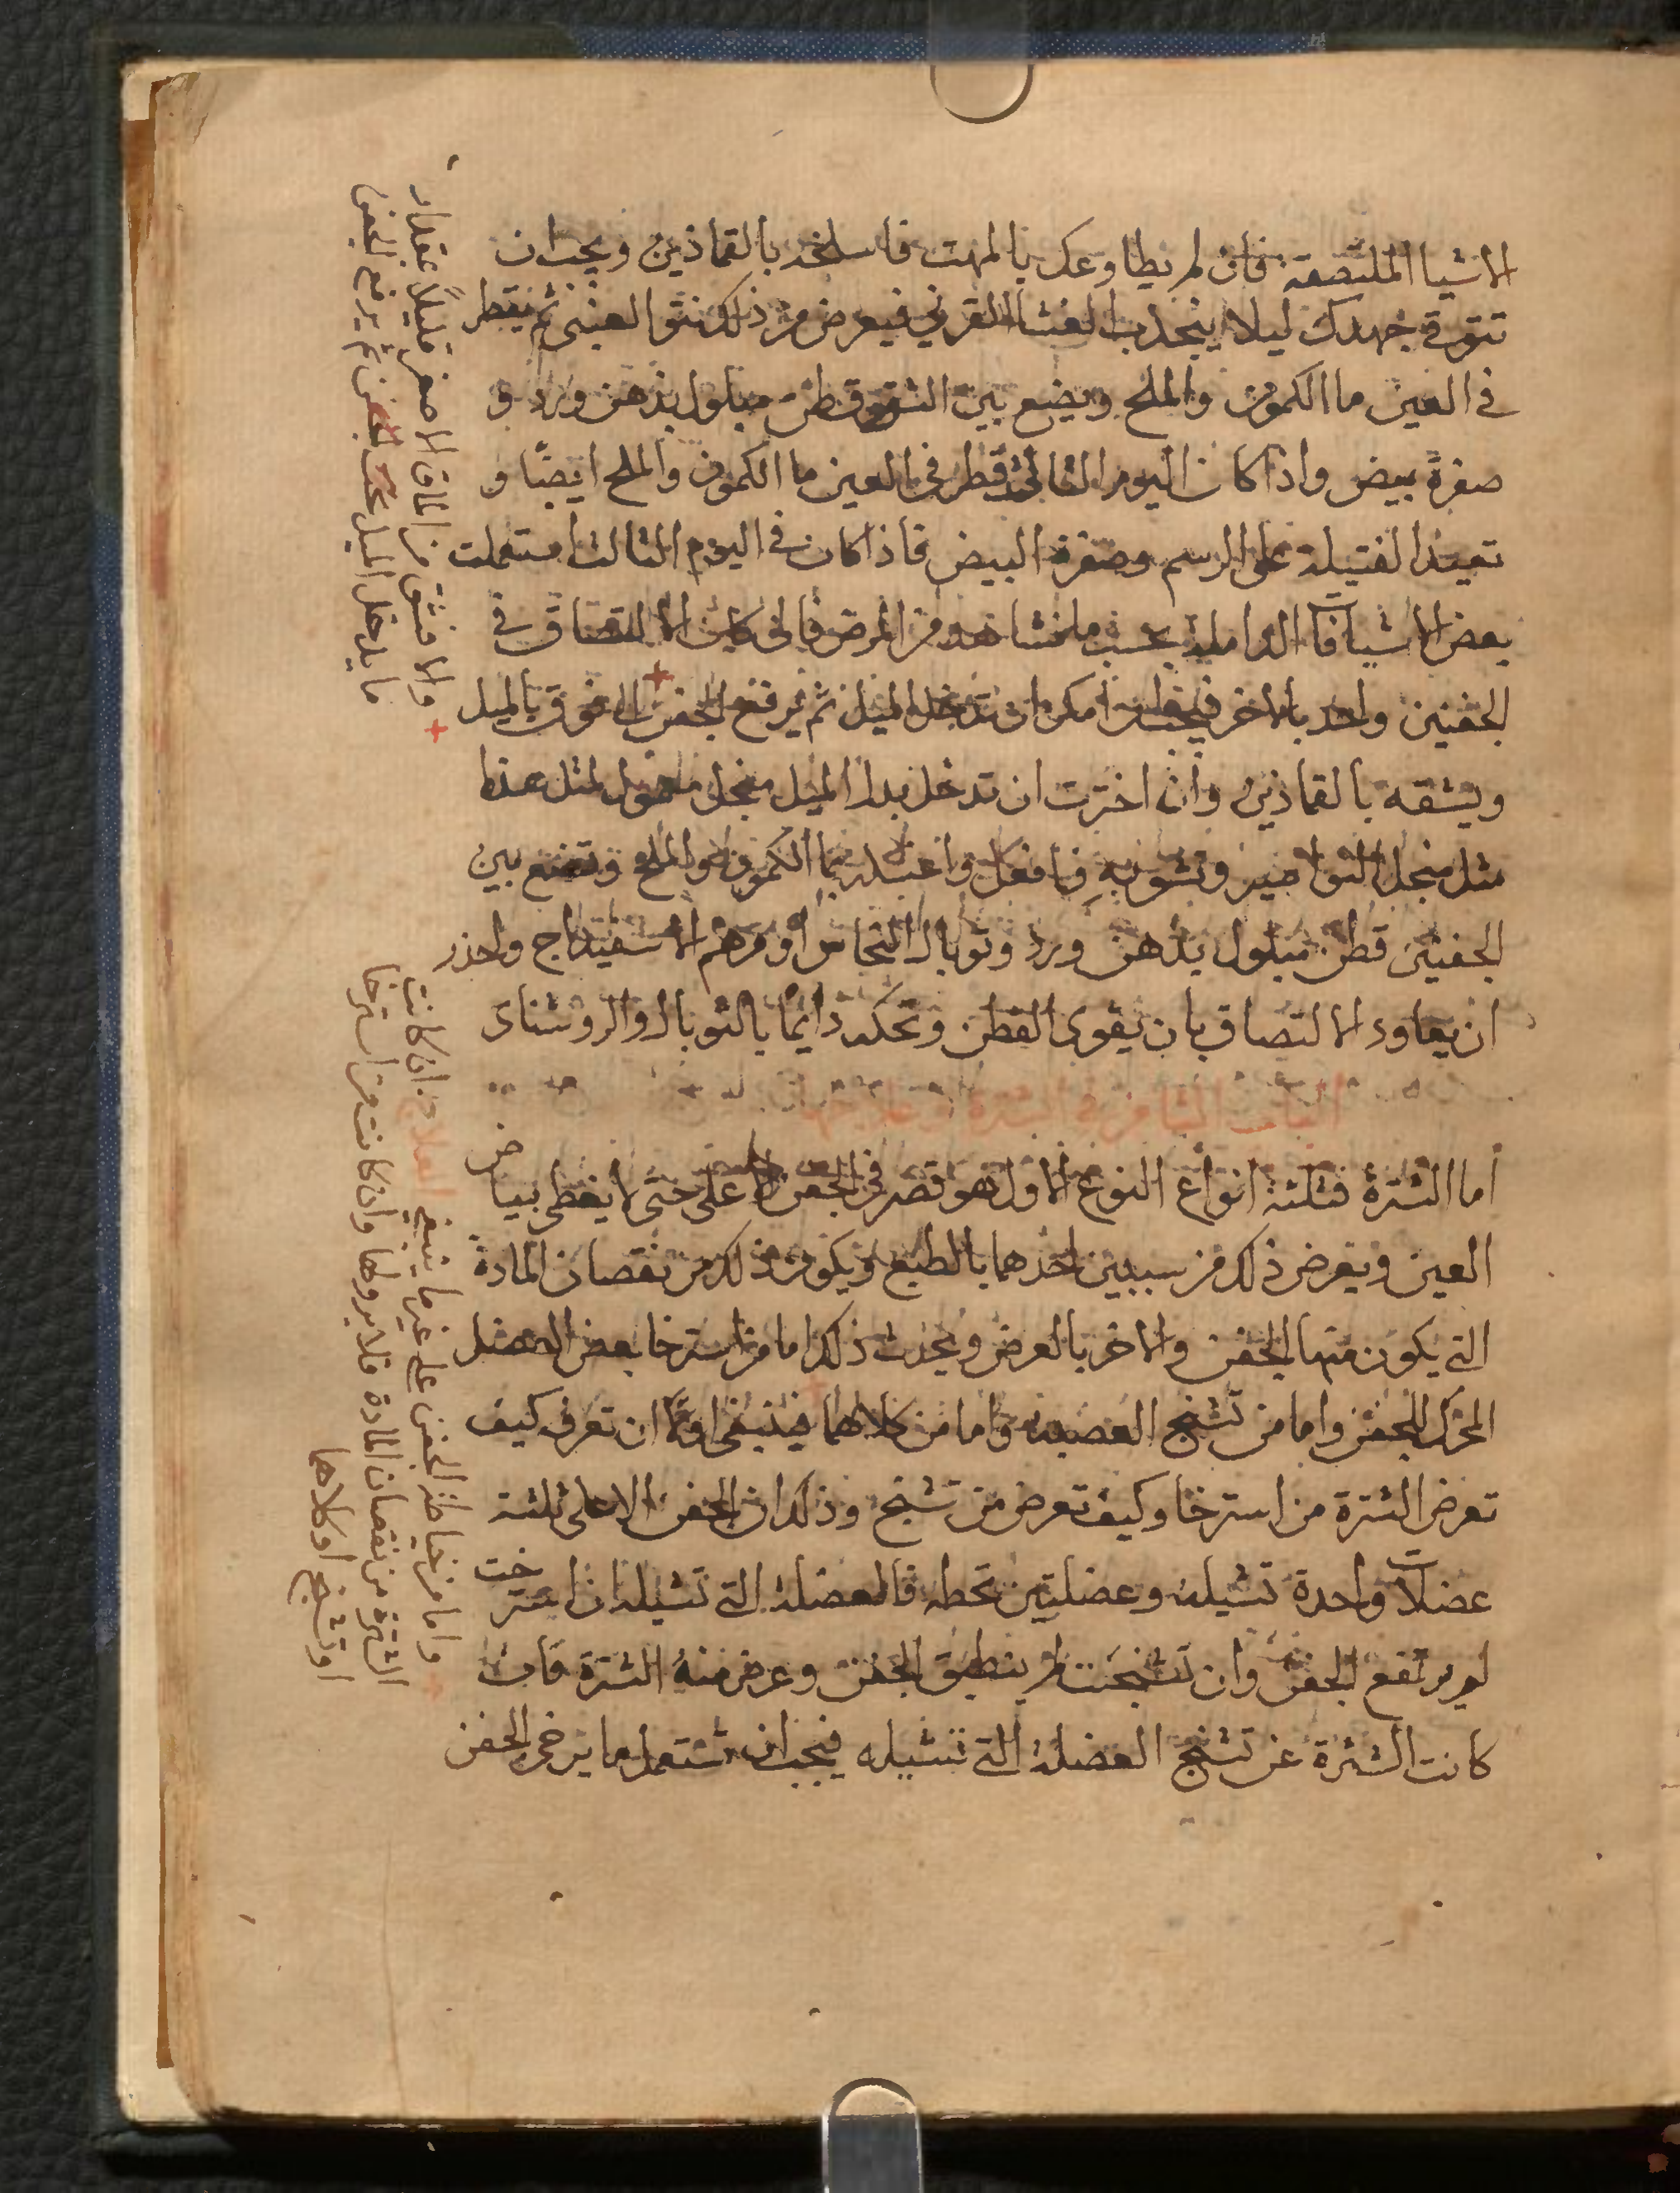 الاشيا الملتصقة فان لم يطاوعك بالمهت فاسلخه بالقماذين ويجب ان
تتوقى جهدك ليلا ينجذب الغشا القرني فيعرض من ذلك نتوا العنبى ثم يقطر
في العين ما الكمون والملح ويضع بين الشق قطن مبلول بدهن ورد و
صفرة بيض واذا كان اليوم الثاني قطر في العين ما الكمون والملح ايضًا و
تعيد الفتيلة على الرسم وصفرة البيض فاذا كان في اليوم الثالث استعملت
بعض الاشيافات الداملة بحسب ما تشاهده من المرض فان كان الالتصاق في
الجفنين واحد بالاخر فيجب ان امكن ان تدخل الميل ثم يرفع الجفن الى فوق بالميل
ويشقه بالقماذين وان اخترت ان تدخل بدل الميل منجل معمول لمثل هذا
مثل منجل النواصير وتشق به فافعل واغسله بما الكمون والملح وتضع بين
الجفنين قطن مبلول بدهن ورد وتوبال النحاس او مرهم الاسفيداج واحذر
ان يعاود الالتصاق بان يقوى القطن وتحكه دايمًا بالتوبال والروشناى
الباب الثامن في الشترة وعلاجها
اما الشترة فثلثة انواع النوع الاول هو قصر في الجفن الاعلى حتى لا يغطى بياض
العين ويعرض ذلك من سببين احدهما بالطبع ويكون ذلك من نقصان المادة
التي يكون منها الجفن والاخر بالعرض ويحدث ذلك اما من استرخا بعض العضل
المحرك للجفن واما من تشنج العضلة واما من كلاهما فينبغى اولًا ان تعرف كيف
تعرض الشترة من استرخا وكيف تعرض من تشنج وذلك ان الجفن الاعلى ثلثة
عضلات واحدة تشيله وعضلتين تحطه فالعضلة التي تشيله ان استرخت
لم يرتفع الجفن وان تشنجت لم ينطبق الجفن وعرض منه الشترة فان
كانت الشترة عن تشنج العضلة التي تشيله فيجب ان تستعمل ما يرخى الجفن
والا فشق من الماق الاصغر قليلًا بمقدار
ما يدخل الميل تحت الجفن ثم يرفع الجفن
واما من خياطة الجفن على غير ما ينبغي العلاج ان كانت
الشترة من نقصان المادة فلا برو لها وان كانت من استرخا
او تشنج او كلاهما